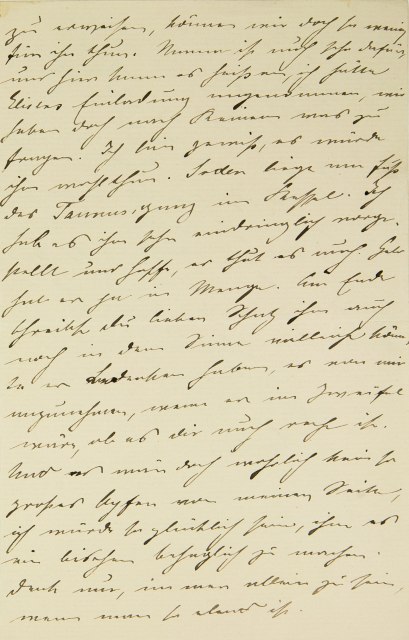 zu erweisen, können wir doch so wenig
für ihn thun. Mama ist auch sehr dafür,
und hier kann es heißen, ich hätte
Elises Einladung angenommen, wir
haben doch nach Keinem was zu
fragen. Ich bin gewiß, es würde
ihm wohlthun. Soden liege am Fuße
des Taunus, ganz im Kessel. Ich
hab es ihm sehr eindringlich vorge-
stellt und hoffe, er thut es auch. Geld
hat er ja in Menge. Am Ende
schreibst du lieber Schatz ihm auch
noch in dem Sinne vielleicht könn-
te er Bedenken haben, es von mir
anzunehmen, wenn er im Zweifel
wäre, ob es dir auch recht ist.
Und es wäre doch wahrlich kein so
großes Opfer von meiner Seite,
ich würde so glücklich sein, ihm es
ein bischen behaglich zu machen.
Denk nur, immer allein zu sein,
wenn man so elend ist.